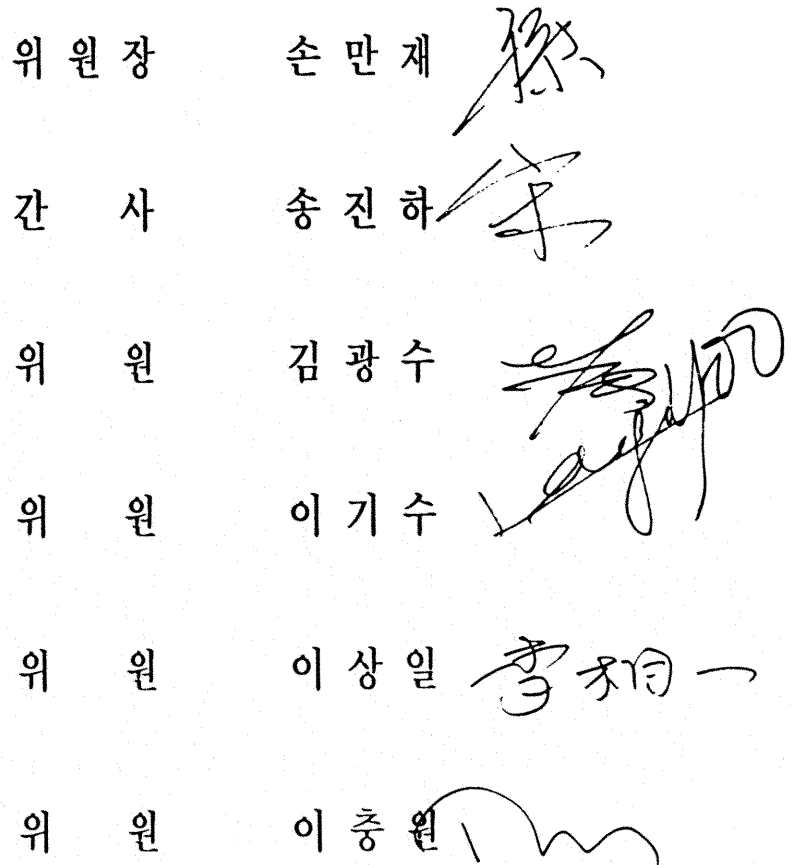 위 원 장 손 만 재
간 사 송 진 하 宋
위 원 김 광 수
위 원 이 기 수
위 원 이 상 일 李相一
위 원 이 충 원